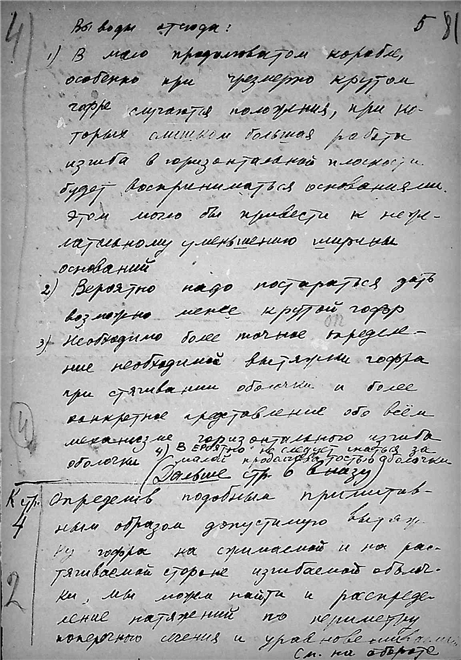 4)
Выводы отсюда: 5 81
1) В мало продолговатом корабле,
особенно при чрезмерно крутом
гофре случаются положения, при ко-
торых слишком большая работа
изгиба в горизонтальной плоскости
будет восприниматься основаниями.
Это могло бы привести к неже-
лательному уменьшению ширины
оснований
2) Вероятно надо постараться дать
возможно менее крутой гофр
3) Необходимо более точное определе-
ние необходимой вытяжки гофра
при стягивании оболочки и более
конкретное представление обо всём
механизме горизонтального изгиба
оболочки 4) Вероятно, не следует гнаться за
малой продолговатостью оболочки
(Дальше стр 6 внизу)
4
К стр.
4
Определив подобным примитив-
ным образом допустимую вытяж-
ку гофра на сжимаемой и на рас-
тягиваемой стороне изгибаемой оболоч-
2
ки, мы можем найти и распреде-
ление натяжений по периметру
поперечного сечения и
См. на обороте